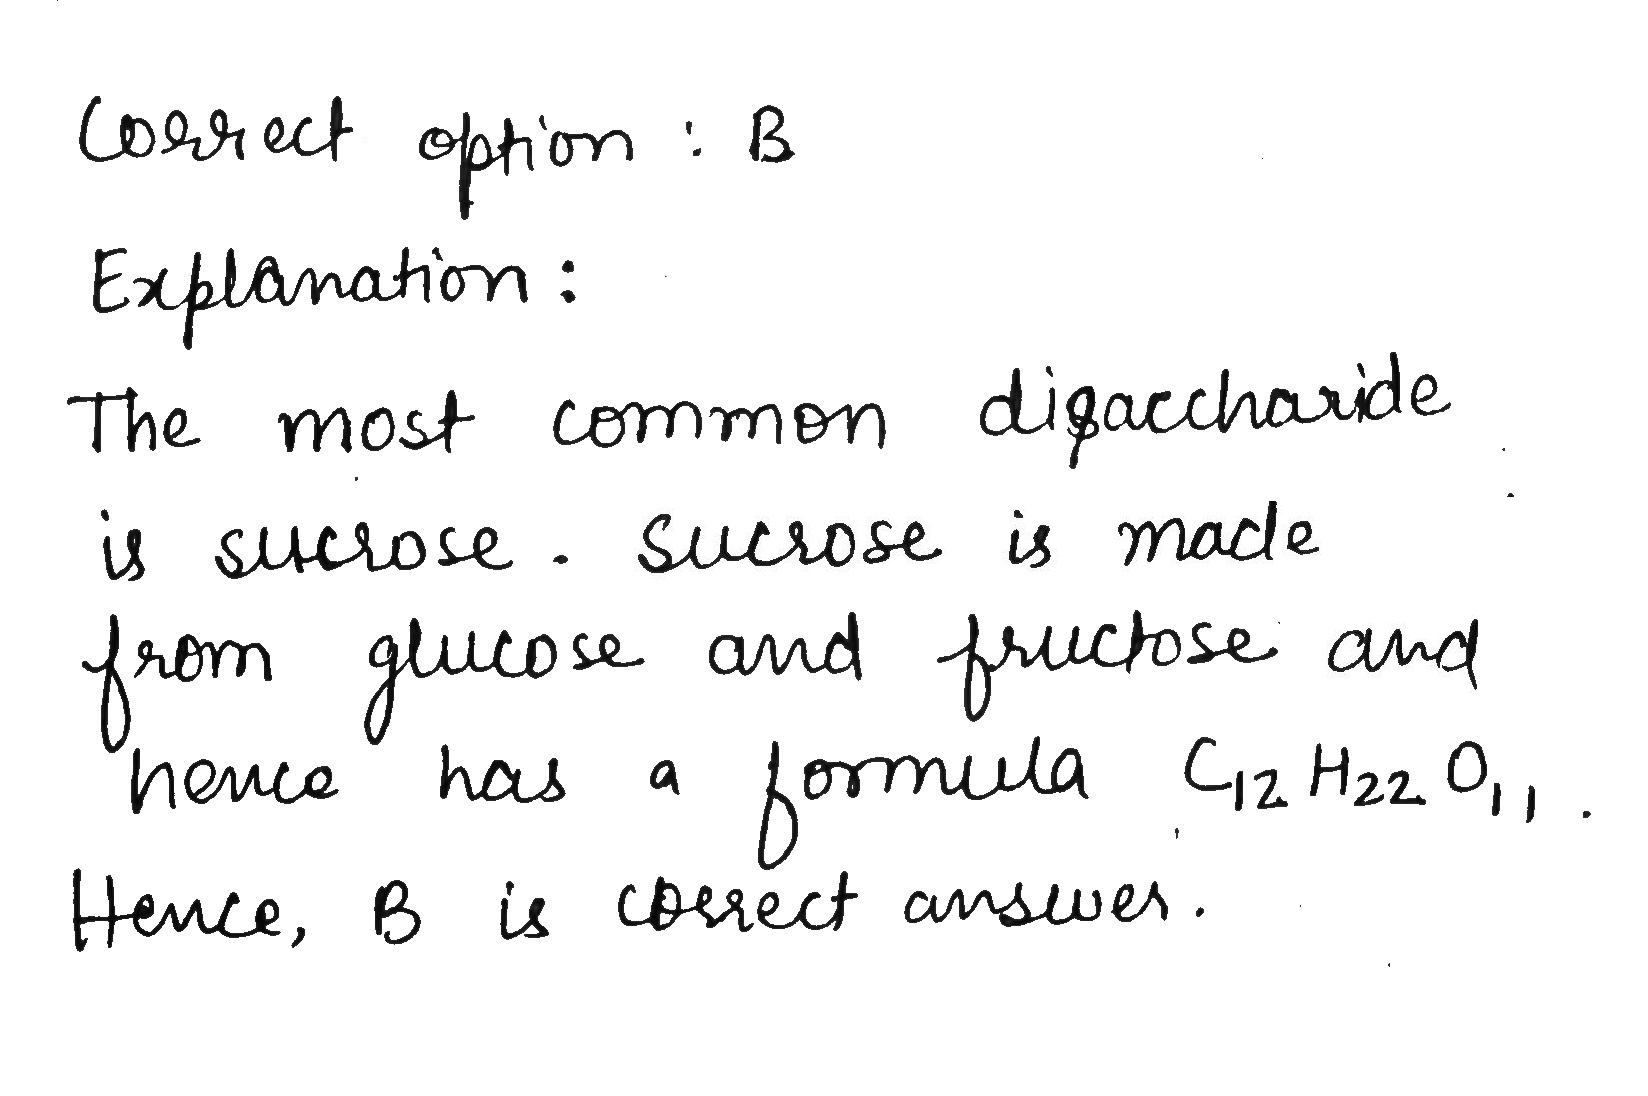 Correct option : B
Explanation :
The most common disaccharide
is sucrose. Sucrose is made
from glucose and fructose and
hence has a formula C₁₂H₂₂O₁₁.
Hence, B is correct answer.